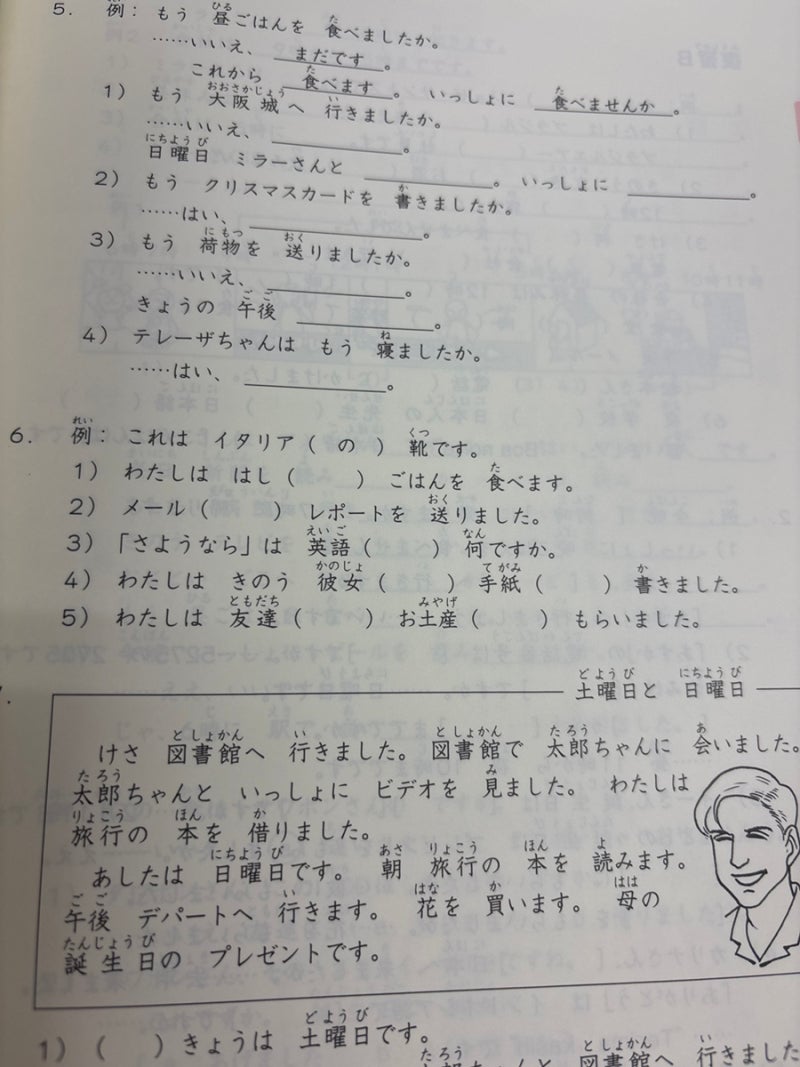 5. 例： もう 昼ごはんを 食べましたか。
……いいえ、 まだです 。
これから 食べます 。 いっしょに 食べませんか 。
1） もう 大阪城へ 行きましたか。
……いいえ、 ＿＿＿＿＿ 。
日曜日 ミラーさんと ＿＿＿＿＿ 。 いっしょに ＿＿＿＿＿ 。
2） もう クリスマスカードを 書きましたか。
……はい、 ＿＿＿＿＿ 。
3） もう 荷物を 送りましたか。
……いいえ、 ＿＿＿＿＿ 。
きょうの 午後 ＿＿＿＿＿ 。
4） テレーザちゃんは もう 寝ましたか。
……はい、 ＿＿＿＿＿ 。
6. 例： これは イタリア（ の ） 靴です。
1） わたしは はし（ ） ごはんを 食べます。
2） メール（ ） レポートを 送りました。
3） 「さようなら」は 英語（ ） 何ですか。
4） わたしは きのう 彼女（ ） 手紙（ ） 書きました。
5） わたしは 友達（ ） お土産（ ） もらいました。
土曜日と 日曜日
けさ 図書館へ 行きました。 図書館で 太郎ちゃんに 会いました。
太郎ちゃんと いっしょに ビデオを 見ました。 わたしは
旅行の 本を 借りました。
あしたは 日曜日です。 朝 旅行の 本を 読みます。
午後 デパートへ 行きます。 花を 買います。 母の
誕生日の プレゼントです。
1）（ ） きょうは 土曜日です。
ちゃんと 図書館へ 行きました